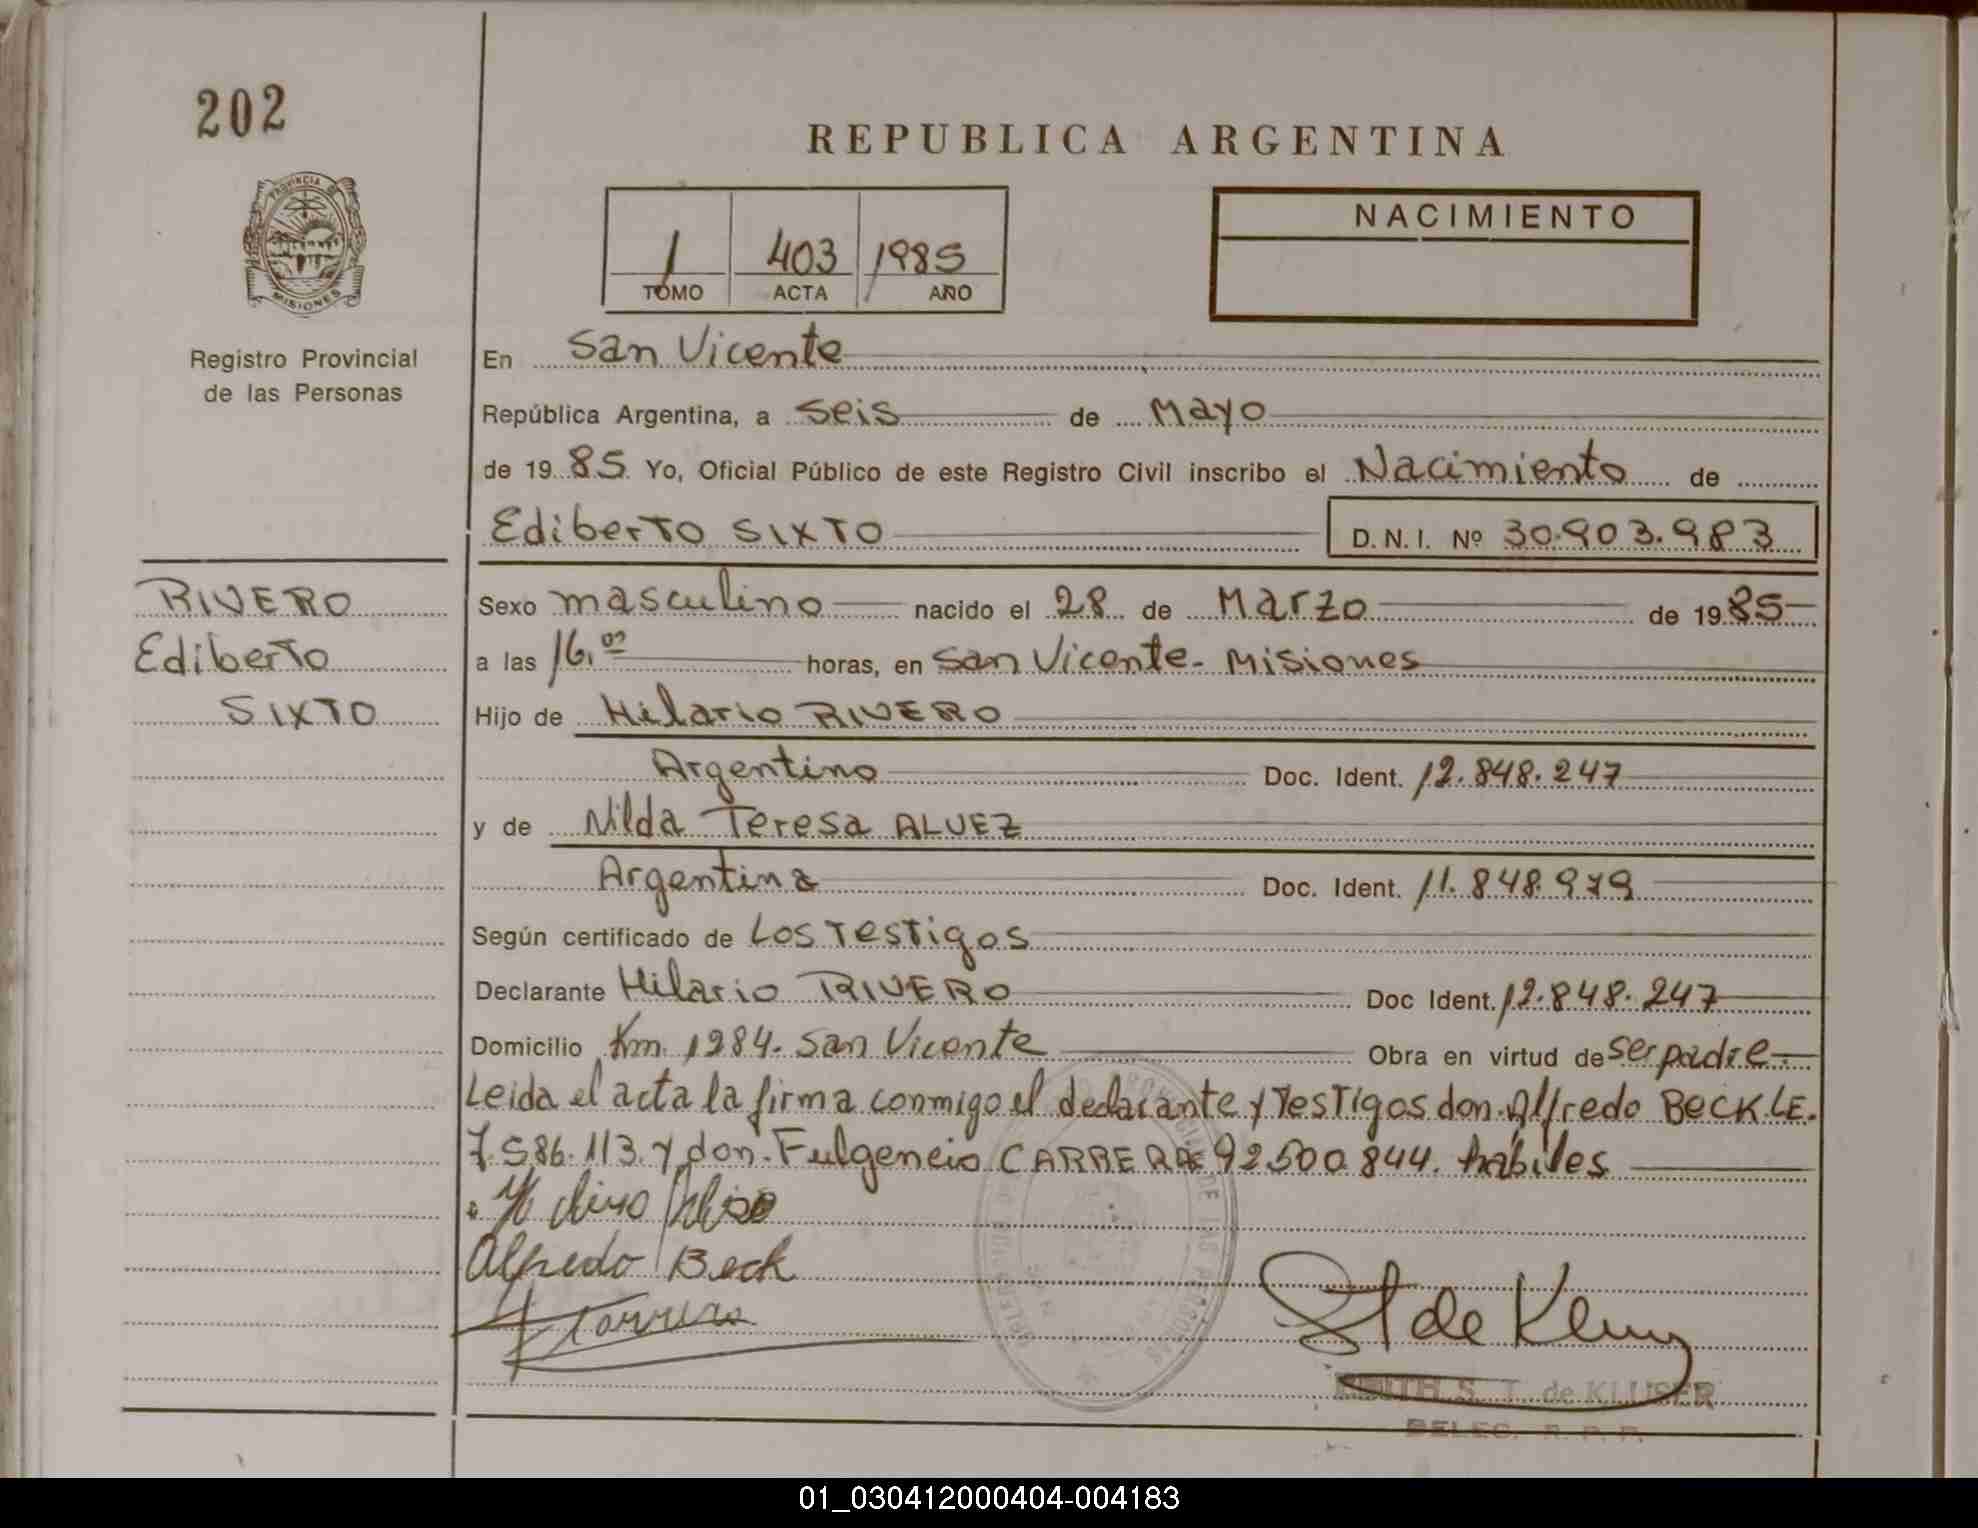 202
REPUBLICA ARGENTINA
PROVINCIA DE
MISIONES
Registro Provincial
de las Personas
1 403 1985
TOMO ACTA AÑO
NACIMIENTO
En San Vicente
República Argentina, a seis de Mayo
de 1985 Yo, Oficial Público de este Registro Civil inscribo el Nacimiento de
Ediberto SIXTO D.N.I. Nº 30.903.983
RIVERO
Ediberto
SIXTO
Sexo masculino nacido el 28 de Marzo de 1985
a las 16,00 horas, en San Vicente - Misiones
Hijo de Hilario RIVERO
Argentino Doc. Ident. 12.848.247
y de Nilda Teresa ALVEZ
Argentina Doc. Ident. 11.848.979
Según certificado de Los Testigos
Declarante Hilario RIVERO Doc Ident. 12.848.247
Domicilio Km. 1284. San Vicente Obra en virtud de ser padre.
Leida el acta la firma conmigo el declarante y Testigos don Alfredo BECK LE.
7.586.113. y don Fulgencio 92.500.844. hábiles
Alfredo Beck
St de
S. T. de KLUSER
DELEG. R. P. P.
01_030412000404-004183